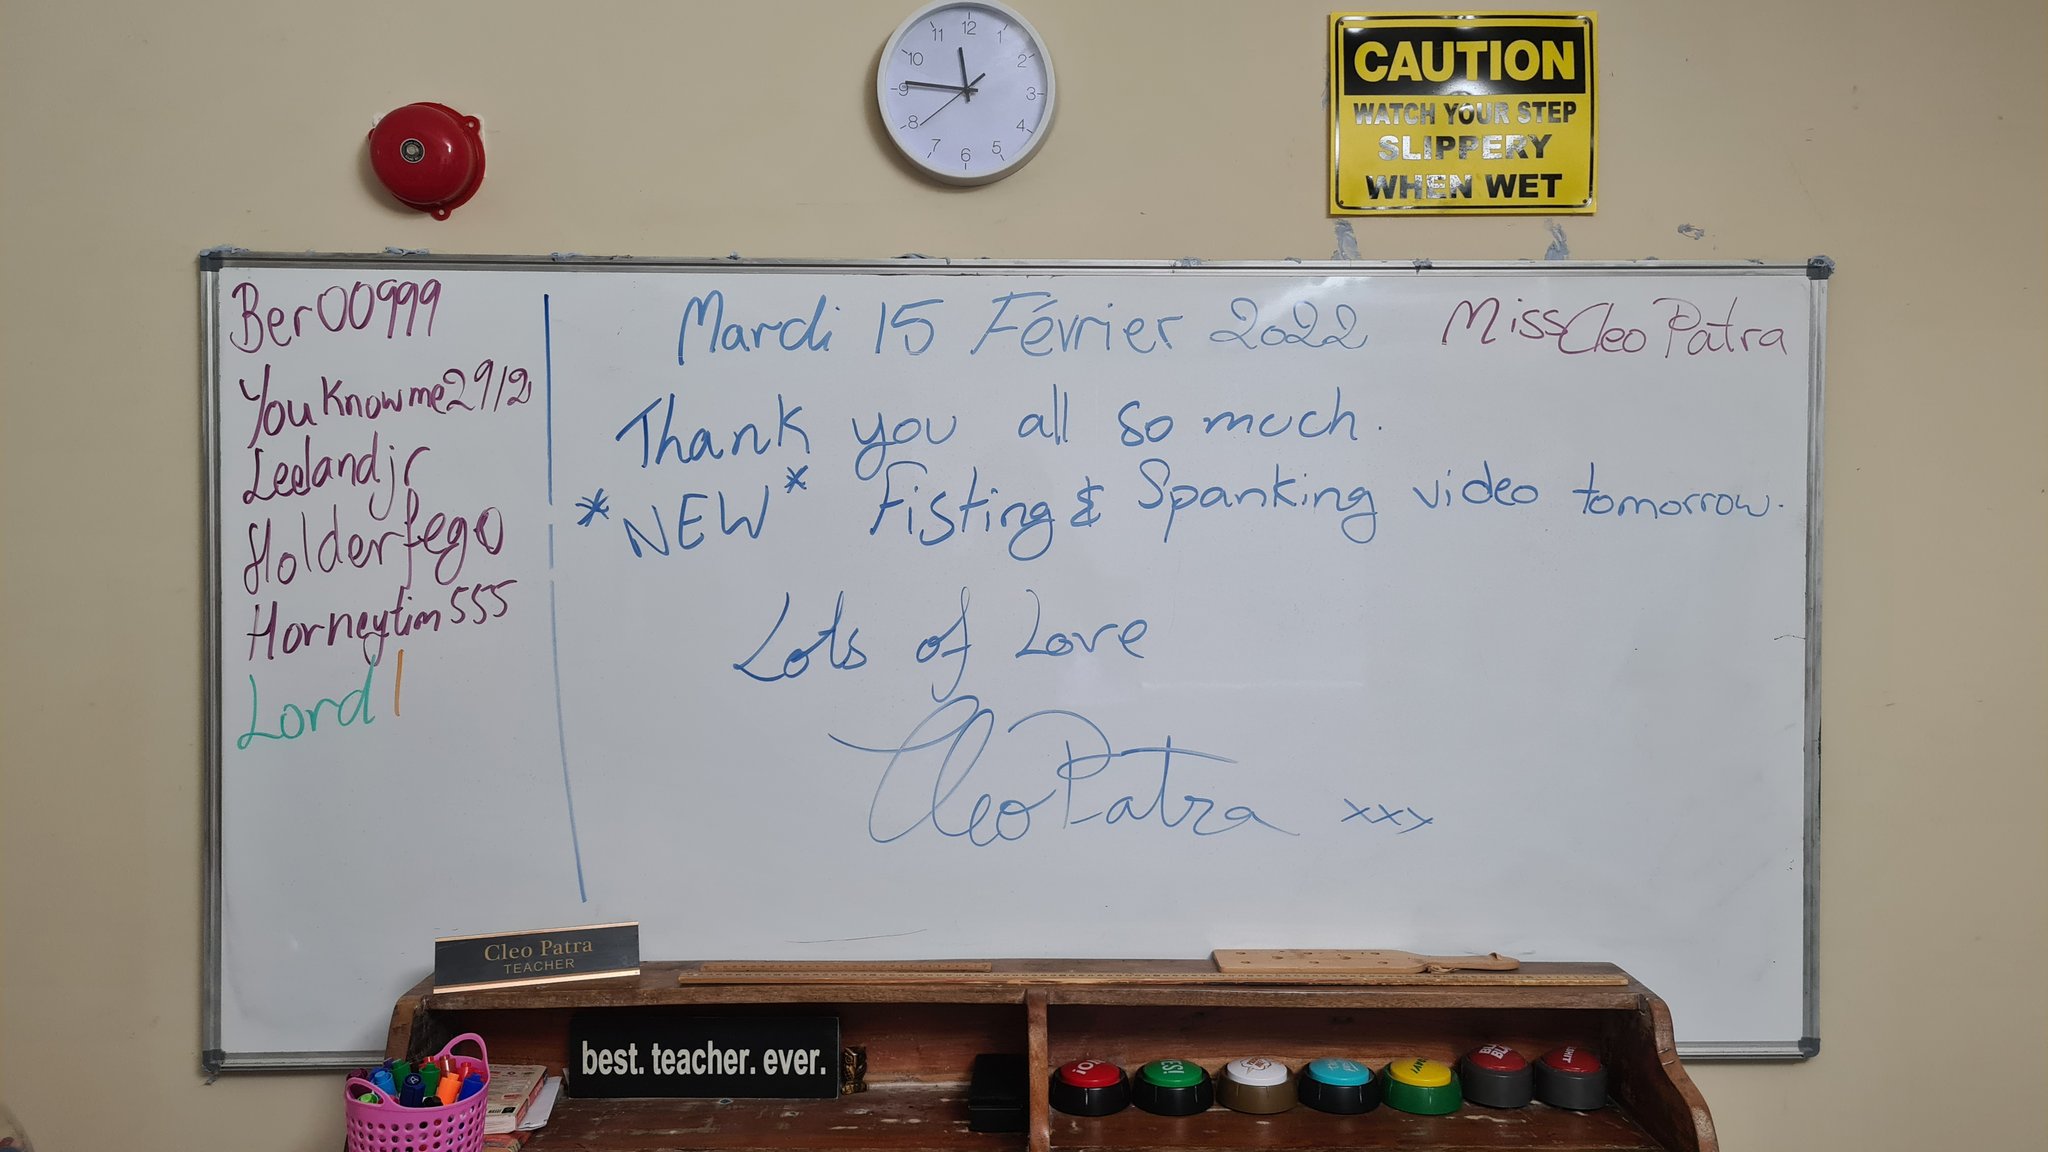 12
11
1
10
2
9
3
8
4
7
5
6
CAUTION
WATCH YOUR STEP
SLIPPERY
WHEN WET
Ber00999
Youknowme2912
Leelandjr
Holderfego
Horneytim555
Lord1
Mardi 15 Février 2022
MissCleoPatra
Thank you all so much.
*NEW* Fisting & Spanking video tomorrow.
Lots of Love
CleoPatra xxx
Cleo Patra
TEACHER
best. teacher. ever.